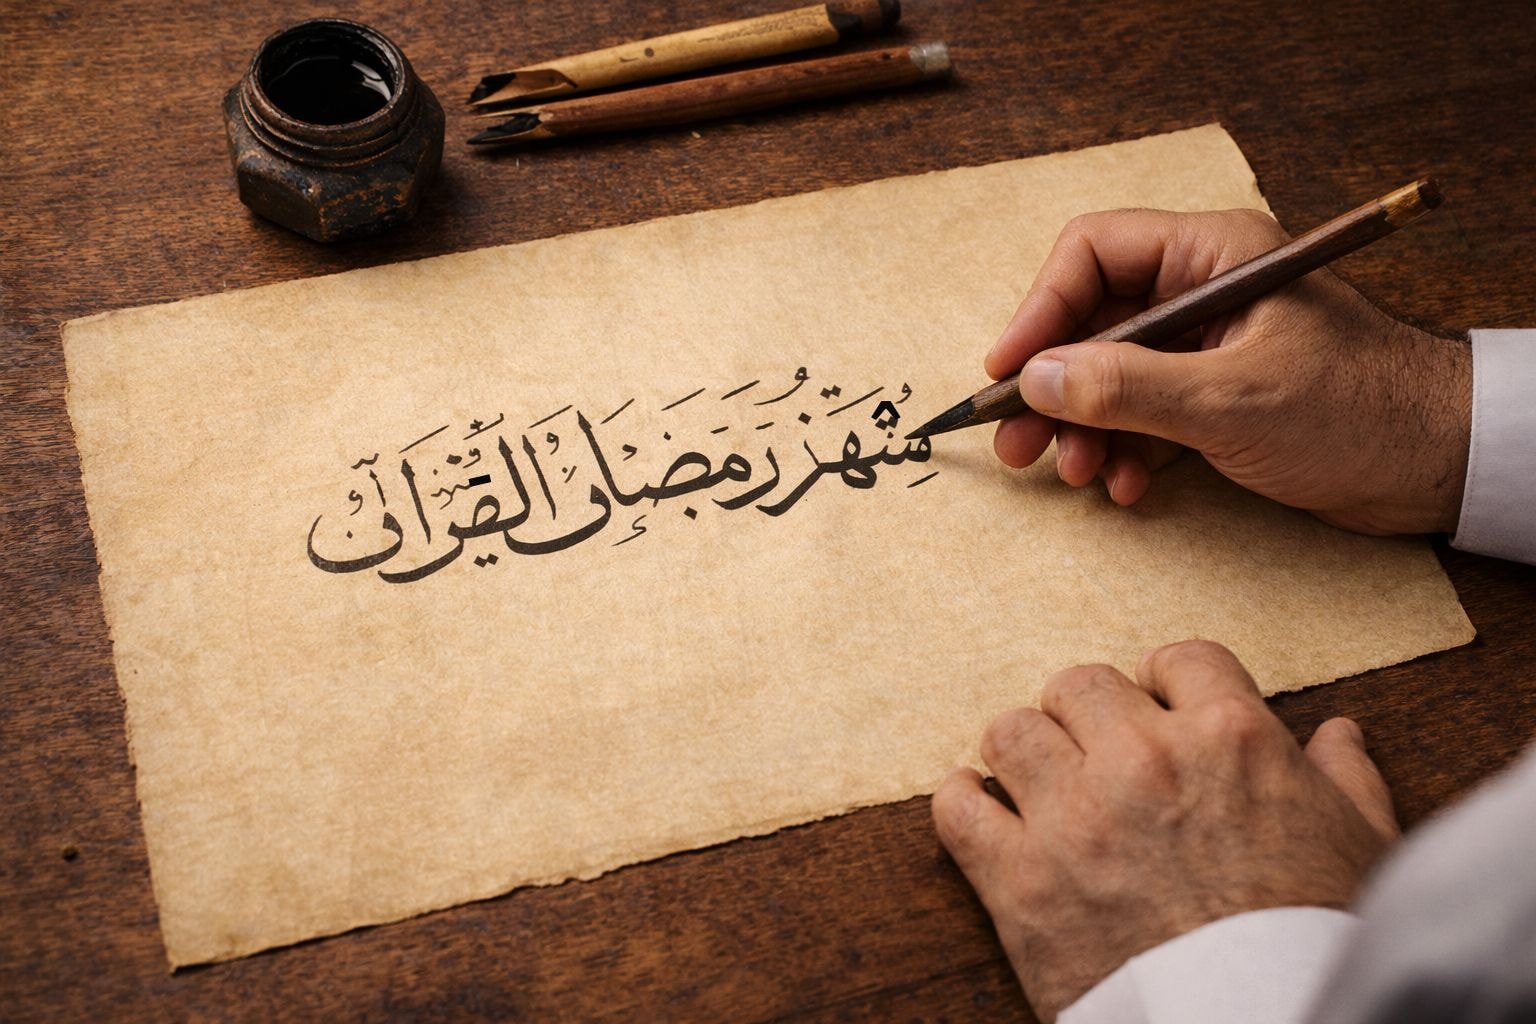 شهر رمضان القرآن